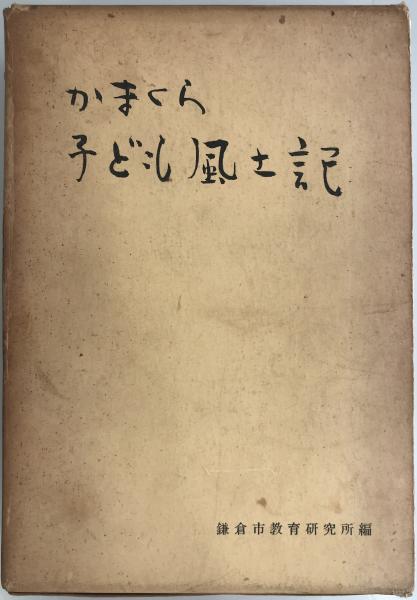 かまくら
子ども風土記
鎌倉市教育研究所編